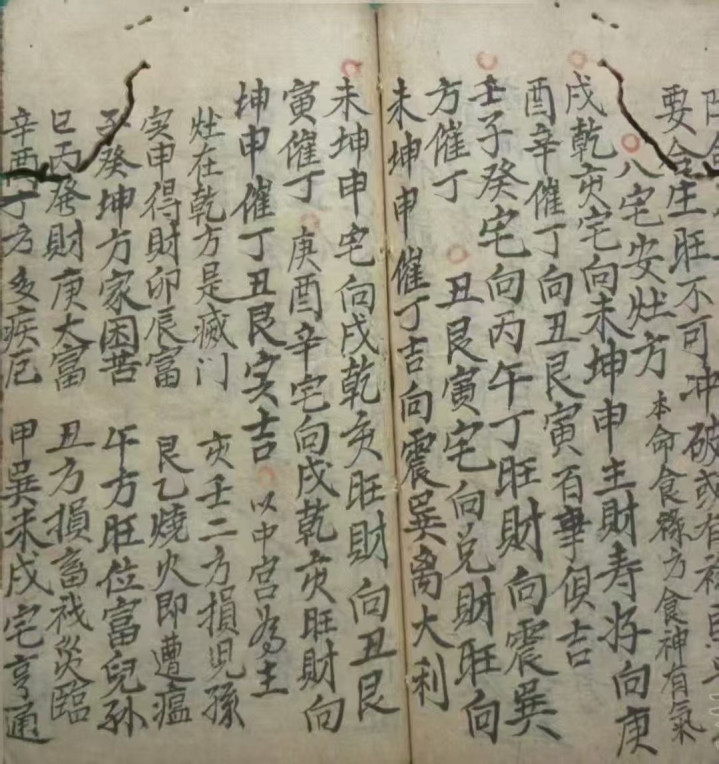 要合生旺不可冲破或有
八宅安灶方 本命食祿方食神有氣
戌乾亥宅向未坤申主財寿好向庚
酉辛催丁向丑艮寅百事俱吉
壬子癸宅向丙午丁旺財向震巽
方催丁 丑艮寅宅向兑財旺向
未坤申催丁吉向震巽离大利
未坤申宅向戌乾亥旺財向丑艮
寅催丁 庚酉辛宅向戌乾亥旺財向
坤申催丁丑艮寅吉 以中宫為主
灶在乾方是滅门 亥壬二方損児孫
寅申得財卯辰富 艮乙燒火即遭瘟
子癸坤方家困苦 午方旺位富兒孙
巳丙發財庚大富 丑方損畜祸災臨
辛酉丁方多疾厄 甲巽未戌宅亨通